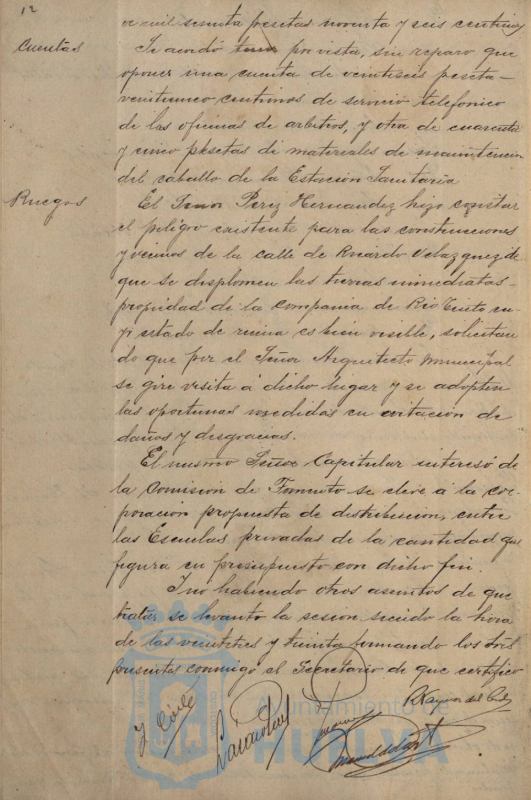 12
ve mil setenta pesetas noventa y seis centimos
Cuentas
Se acordó por vista, sin reparo que
oponer una cuenta de veintiseis peseta-
veintiunco centimos de servicio telefonico
de las oficinas de arbitrios, y otra de cuarenta
y cinco pesetas di materiales de manutencion
del caballo de la Estacion Sanitaria
Ruegos
El Señor Perez Hernandez hizo constar
el peligro existente para las construcciones
y vecinos de la calle de Ricardo Velazquez de
que se desplomen las tierras inmediatas-
propiedad de la Compañia de Rio Tinto cu-
yo estado de ruina es bien visible, solicitan
do que por el Señor Arquitecto municipal
se gire visita á dicho lugar y se adopten
las oportunas medidas en evitacion de
daños y desgracias.
El mismo Señor Capitular interesó de
la Comision de Fomento se eleve á la cor
poracion propuesta de distribucion, entre
las Escuelas privadas de la cantidad que
figura en presupuesto con dicho fin.
I no habiendo otros asuntos de que
tratar se levantó la sesion siendo la hora
de las veintitres y treinta firmando los Sres
presentes conmigo el Secretario de que certifico
Ayuntamiento de
HUELVA